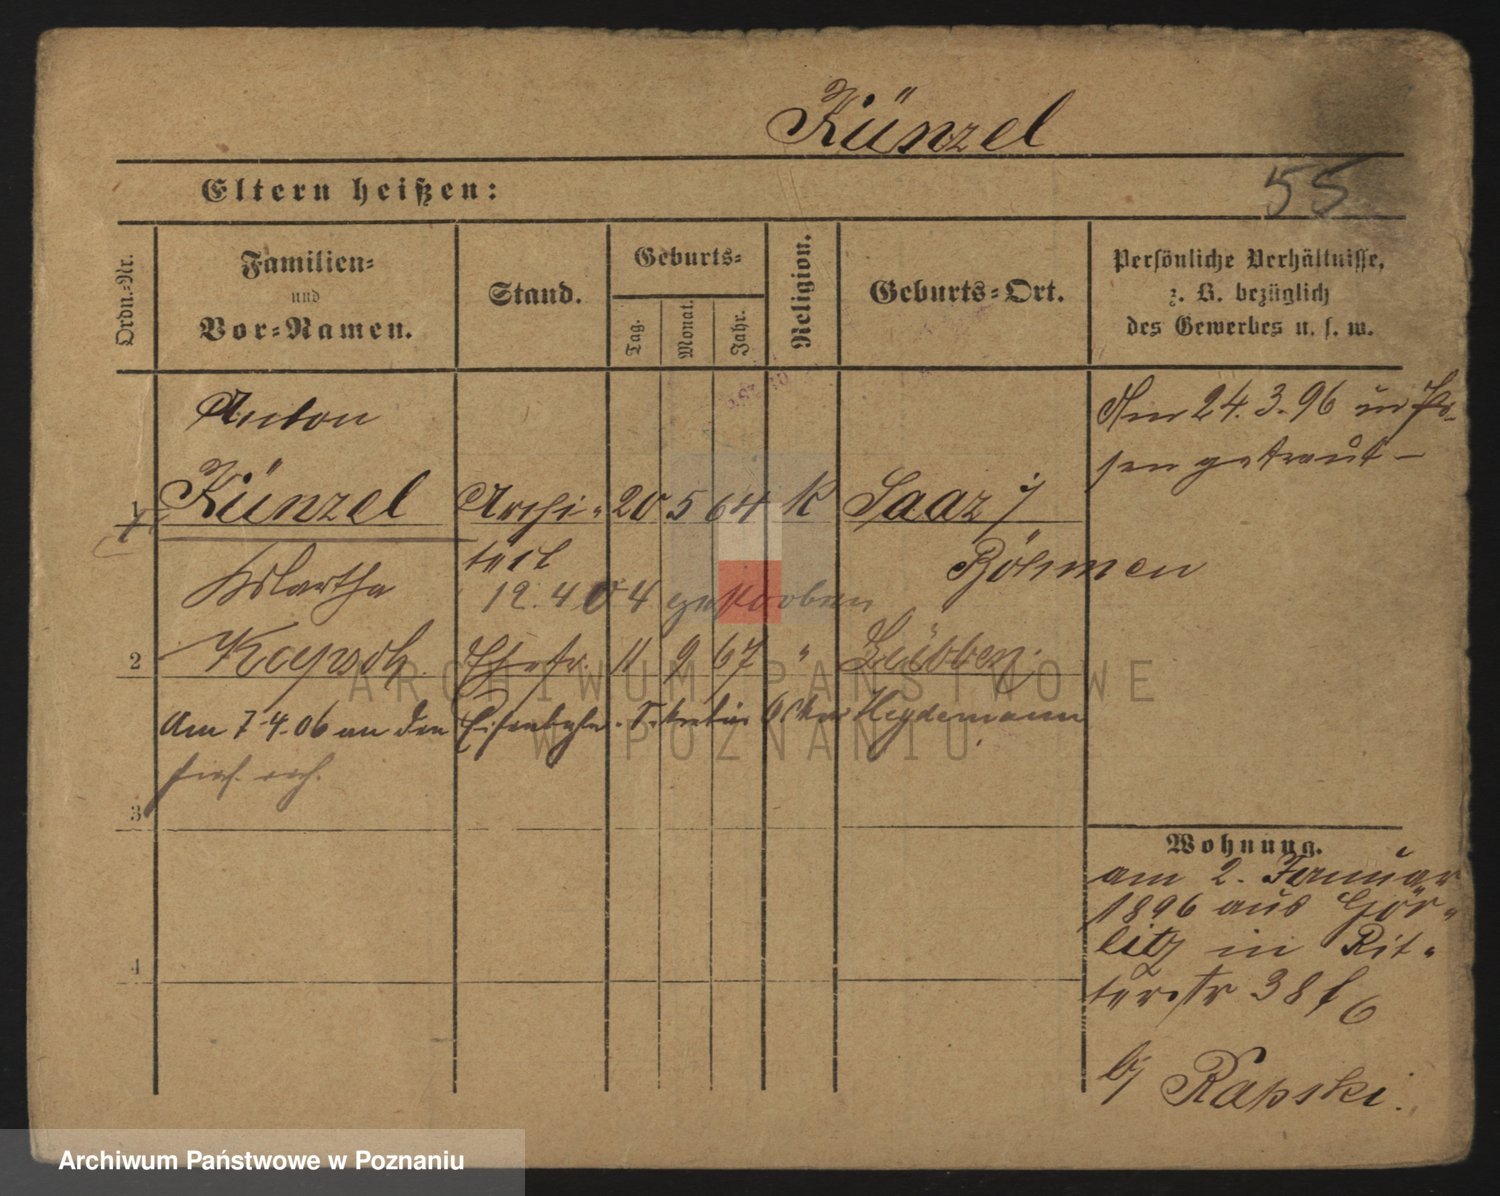 Künzel
Eltern heißen:
55
Ordn.-Nr.
Familien-
und
Vor-Namen.
Stand.
Geburts-
Tag.
Monat.
Jahr.
Religion.
Geburts-Ort.
Persönliche Verhältnisse,
z. B. bezüglich
des Gewerbes u. s. w.
Anton
Am 24.3.96 in Po-
sen getraut -
1 Künzel Archi- 20 5 64 K Saaz i/
tect Böhmen
Martha 12.4 04 gestorben
2 Kaysch Ehefr. 11 9 67 " Lübben.
Am 7.4.06 an den Eisenbahn-Sekretär Heydemann
3
4
Wohnung.
am 2. Januar
1896 aus Gör-
litz in Rit-
terstr 38 6
bj Rapski.
ARCHIWUM PAŃSTWOWE
W POZNANIU
Archiwum Państwowe w Poznaniu